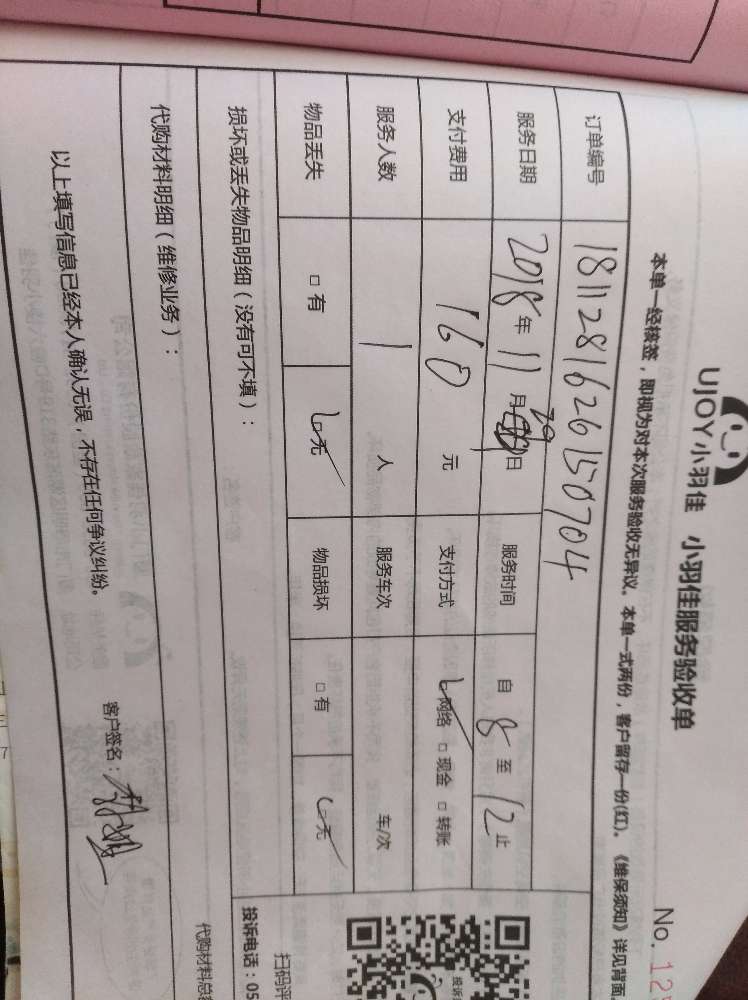 UJOY小羽佳 小羽佳服务验收单
No. 12
本单一经核签，即视为对本次服务验收无异议。本单一式两份，客户留存一份(红)。《维保须知》详见背面。
订单编号 1811281626150704
服务日期 2018年11月29日 服务时间 自 8 至 12 止
支付费用 160 元 支付方式 ☑网络 □现金 □转账
服务人数 1 人 服务车次 车/次
物品丢失 □有 ☑无 物品损坏 □有 ☑无
损坏或丢失物品明细（没有可不填）：
扫码评
投诉电话：05
代购材料明细（维修业务）：
代购材料总
以上填写信息已经本人确认无误，不存在任何争议纠纷。
客户签名：